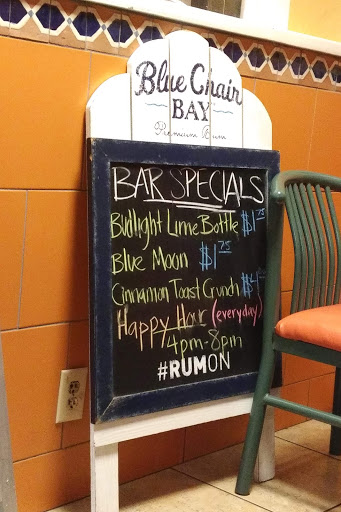 Blue Chair
BAY
Premium Rum
BAR SPECIALS
Budlight Lime Bottle $1.75
Blue Moon $1.75
Cinnamon Toast Crunch
Happy Hour (everyday)
4pm-8pm
#RUMON